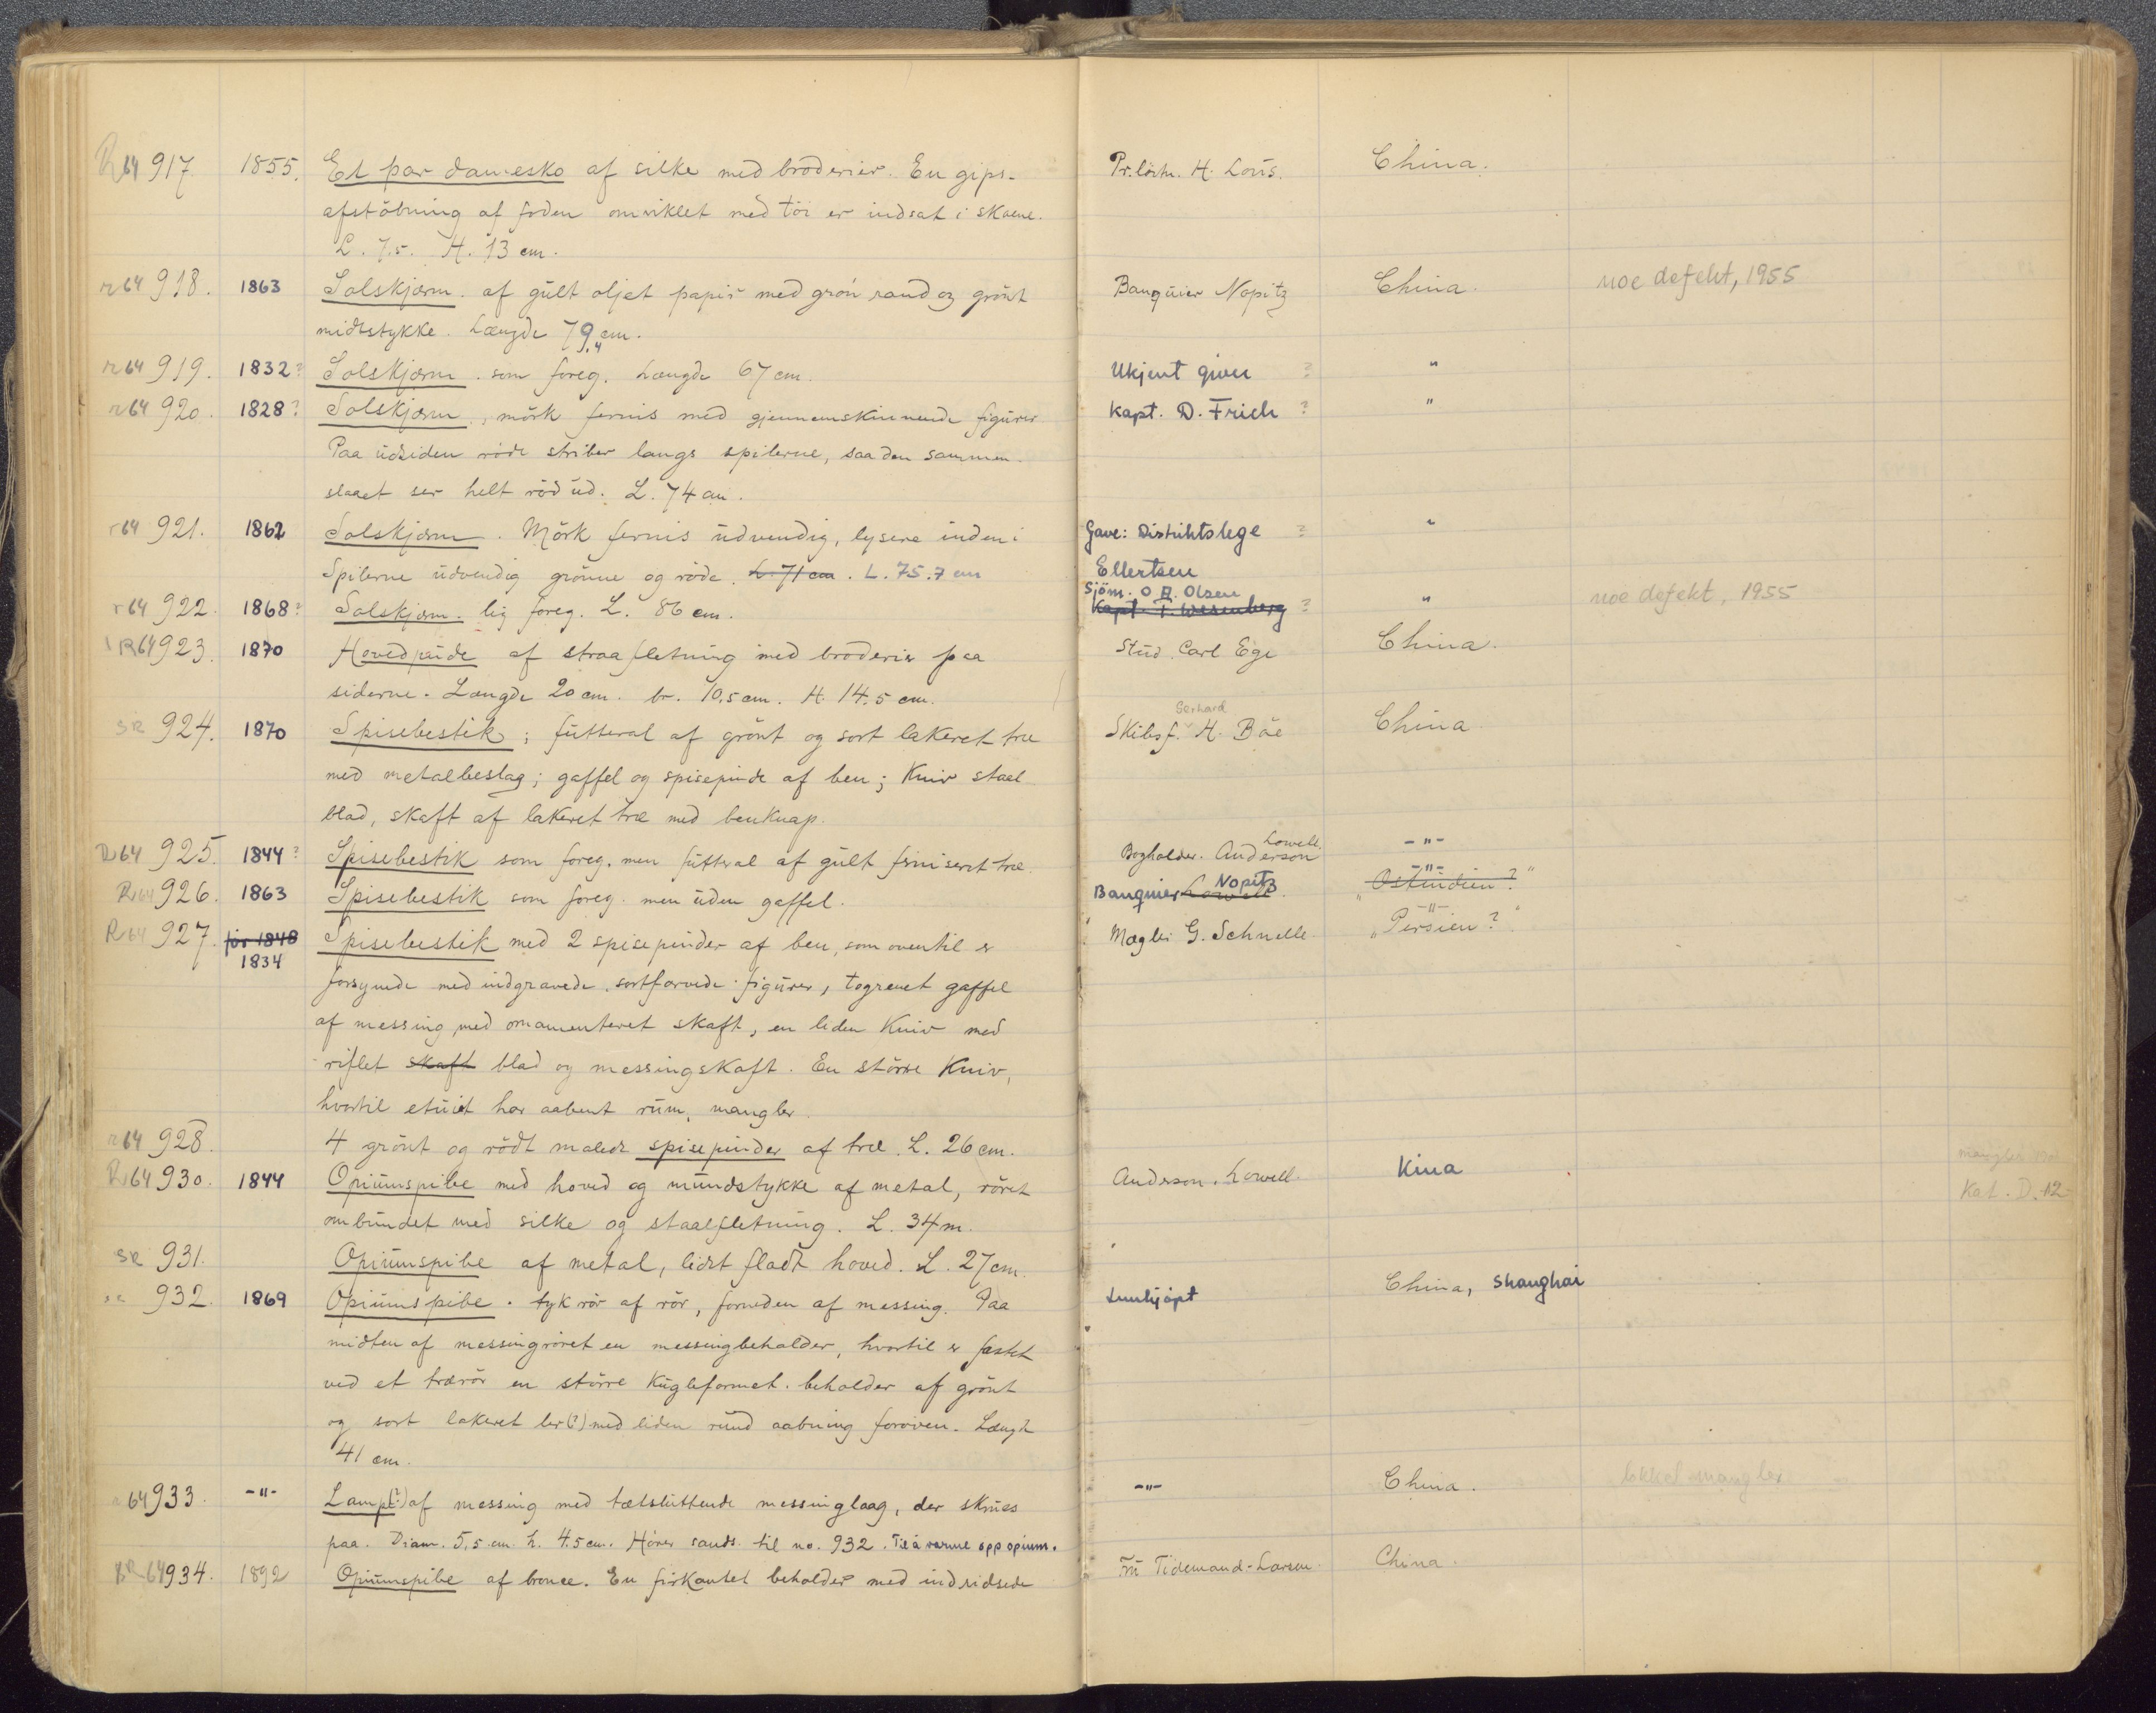 R64 917. 1855. Et par damesko af silke med broderier. En gips- Pr.löitn. H. Lous. China.
afstöbning af foden omviklet med töi er indsat i skoene.
L. 7,5. H. 13 cm.
r64 918. 1863 Solskjærm. af gult oljet papir med grön rand og grönt Banquier Nopitz China. noe defekt, 1955
midtstykke. Længde 79,4 cm.
r64 919. 1832? Solskjærm. som foreg. Længde 67 cm. Ukjent giver ? "
r64 920. 1828? Solskjærm., mörk fernis med gjennemskinnende figurer Kapt. D. Frich ? "
Paa udsiden röde striber langs spilerne, saa den sammen-
slaaet ser helt röd ud. L. 74 cm.
r64 921. 1862 Solskjærm. Mörk fernis udvendig, lysere inden i Gave: Distriktslege ? "
Spilerne udvendig grönne og röde. L. 71 cm. L. 75.7 cm Ellertsen
Sjöm. O.B. Olsen
r64 922. 1868? Solskjærm. lig foreg. L. 86 cm. Kapt. T. Wesenberg ? " noe defekt, 1955
R64 923. 1870 Hovedpude af straafletning med broderier paa Stud. Carl Ege China.
siderne. Længde 20 cm. br. 10,5 cm. H. 14,5 cm.
Gerhard
SR 924. 1870 Spisebestik; futteral af grönt og sort lakeret træ Skibsf. H. Böe China
med metalbeslag; gaffel og spisepinde af ben; Kniv staal
blad, skaft af lakeret træ med benknap.
R64 925. 1844? Spisebestik som foreg. men futteral af gultferniseret træ. Bogholder. Anderson Lowell. -"-
R64 926. 1863 Spisebestik som foreg. men uden gaffel. Banquier Lowell Nopitz "Ostindien?" -"-
R64 927. för 1848 Spisebestik med 2 spisepinder af ben, som oventil er Mægler G. Schnelle. "Persien?" -"-
1834
forsynede med indgravede, sortfarvede figurer, togrenet gaffel
af messing med ornamenteret skaft, en liden Kniv med
riflet skaft blad og messingskaft. En större Kniv,
hvortil etuiet har aabent rum, mangler.
r64 928. 4 grönt og rödt malede spisepinder af træ. L. 26 cm.
R64 930. 1844 Opiumspibe med hoved og mundstykke af metal, röret Anderson. Lowell. Kina mangler
ombundet med silke og staalfletning. L. 34 m. Kat. D. 12
SR 931. Opiumspibe af metal, lidet fladt hoved. L. 27 cm.
932. 1869 Opiumspibe. tyk rör af rör, forneden af messing. Paa Innkjöpt China, Shanghai
midten af messingröret en messingbeholder, hvortil er fæstet
ved et trærör en större kugleformet beholder af grönt
og sort lakeret ler(?) med liden rund aabning foroven. Længde
41 cm.
64 933. -"- Lampe(?) af messing med tætsluttende messinglaag, der skrues -"- China. mangler
paa. Diam. 5,5 cm. h. 4.5 cm. Hörer sands. til no. 932. Til å varme opp opium.
R64 934. 1892 Opiumspibe af bronce. En firkantet beholder med indridsede Fru Tidemand-Larsen. China.